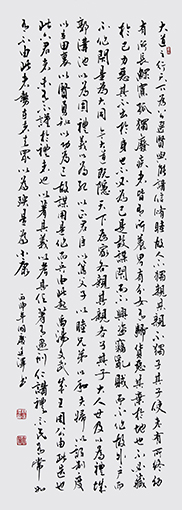 大道之行也天下為公選賢與能講信修睦故人不獨親其親不獨子其子使老有所終幼
有所長鰥寡孤獨廢疾者皆有所養男有分女有歸貨惡其棄於地也不必藏
於己力惡其不出於身也不必為己是故謀閉而不興盜竊亂賊而不作故外戶而
不閉是謂大同今大道既隱天下為家各親其親各子其子大人世及以為禮城
郭溝池以為固禮義以為紀以正君臣以篤父子以睦兄弟以和夫婦以設制度
以立田里以賢勇知以功為己故謀用是作而兵由此起禹湯文武成王周公由此其選也
此六君子者未有不謹於禮者也以著其義以考其信著有過刑仁講讓示民有常如
有不由此者在勢者去眾以為殃是謂小康
丙申年 書